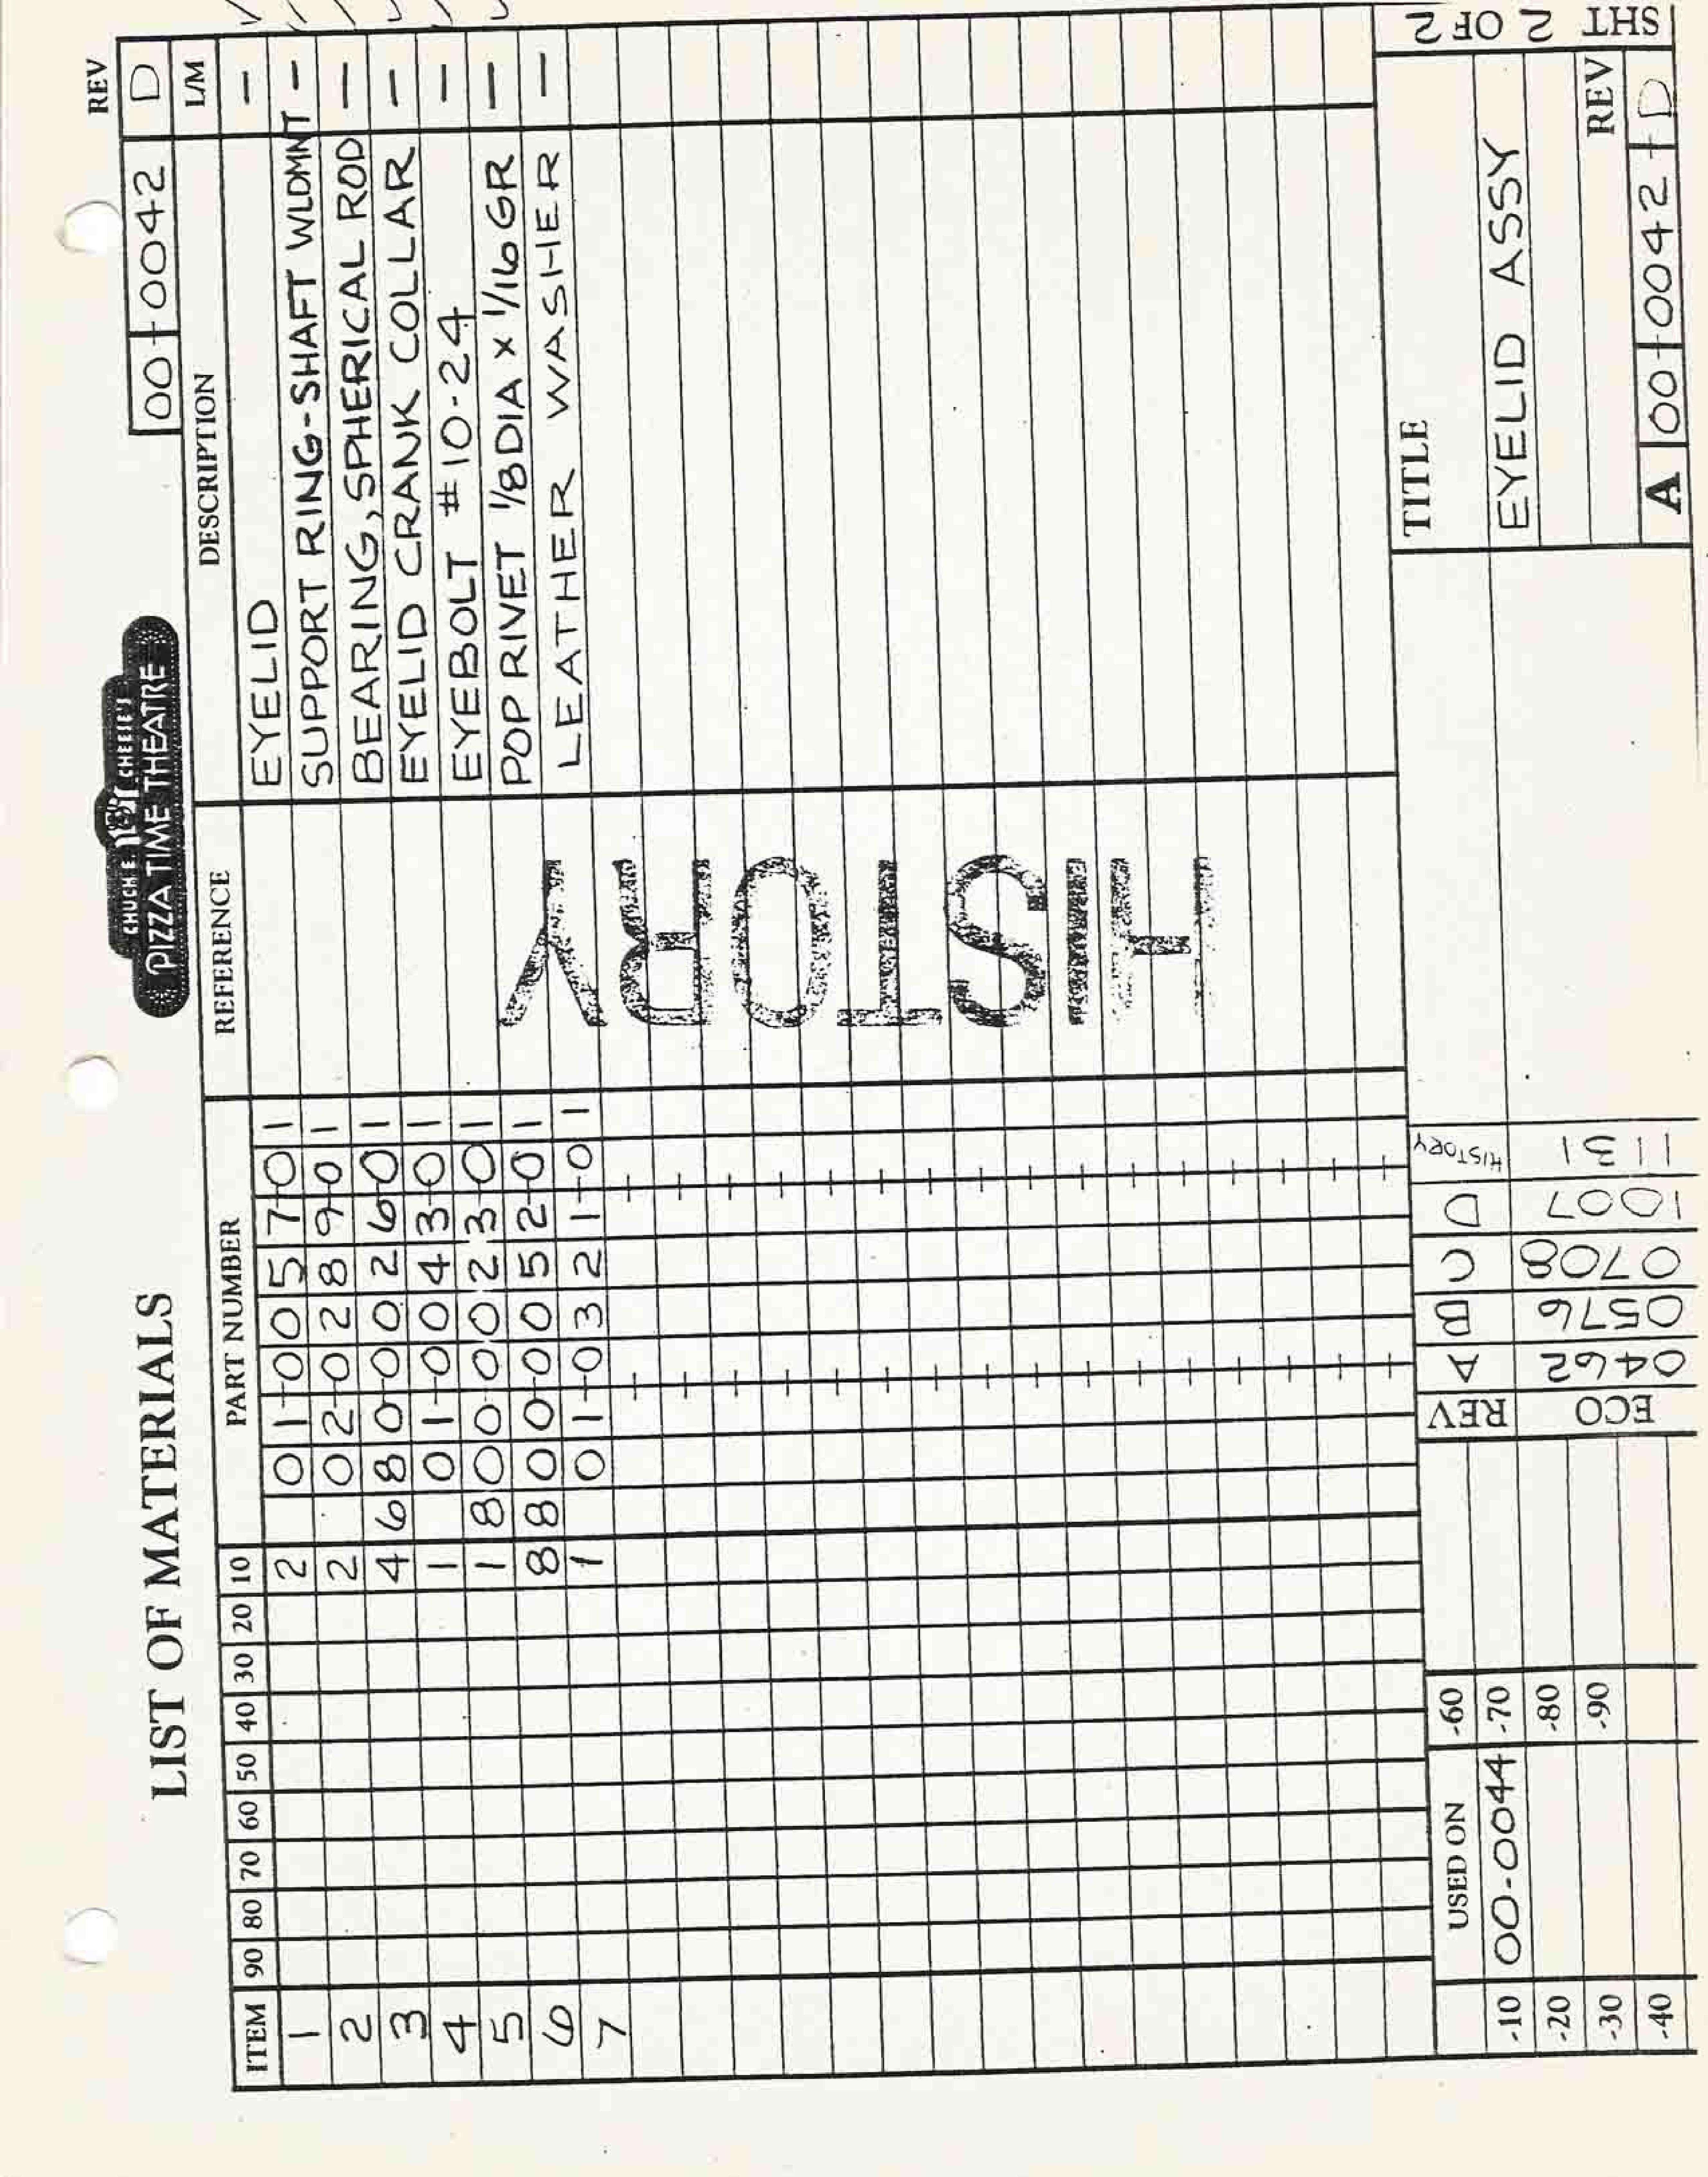 LIST OF MATERIALS
CHUCK E. CHEESE'S
PIZZA TIME THEATRE
REV
00-0042 D
ITEM 90 80 70 60 50 40 30 20 10 PART NUMBER REFERENCE DESCRIPTION L/M
1 2 01-0057-01 - EYELID -
2 2 02-0289-01 - SUPPORT RING-SHAFT WLDMNT -
3 4 680-00026-01 - BEARING, SPHERICAL ROD -
4 1 01-0043-01 - EYELID CRANK COLLAR -
5 1 800-00023-01 - EYEBOLT #10-24 -
6 8 800-00052-01 - POP RIVET 1/8 DIA x 1/16 GR -
7 1 01-0321-01 - LEATHER WASHER -
HISTORY
USED ON
-10 00-0044 -60
-70
-20 -80
-30 -90
-40
REV A B C D HISTORY
ECO 0462 0576 0708 1007 1131
TITLE
EYELID ASSY
REV
A 00-0042-D
SHT 2 OF 2